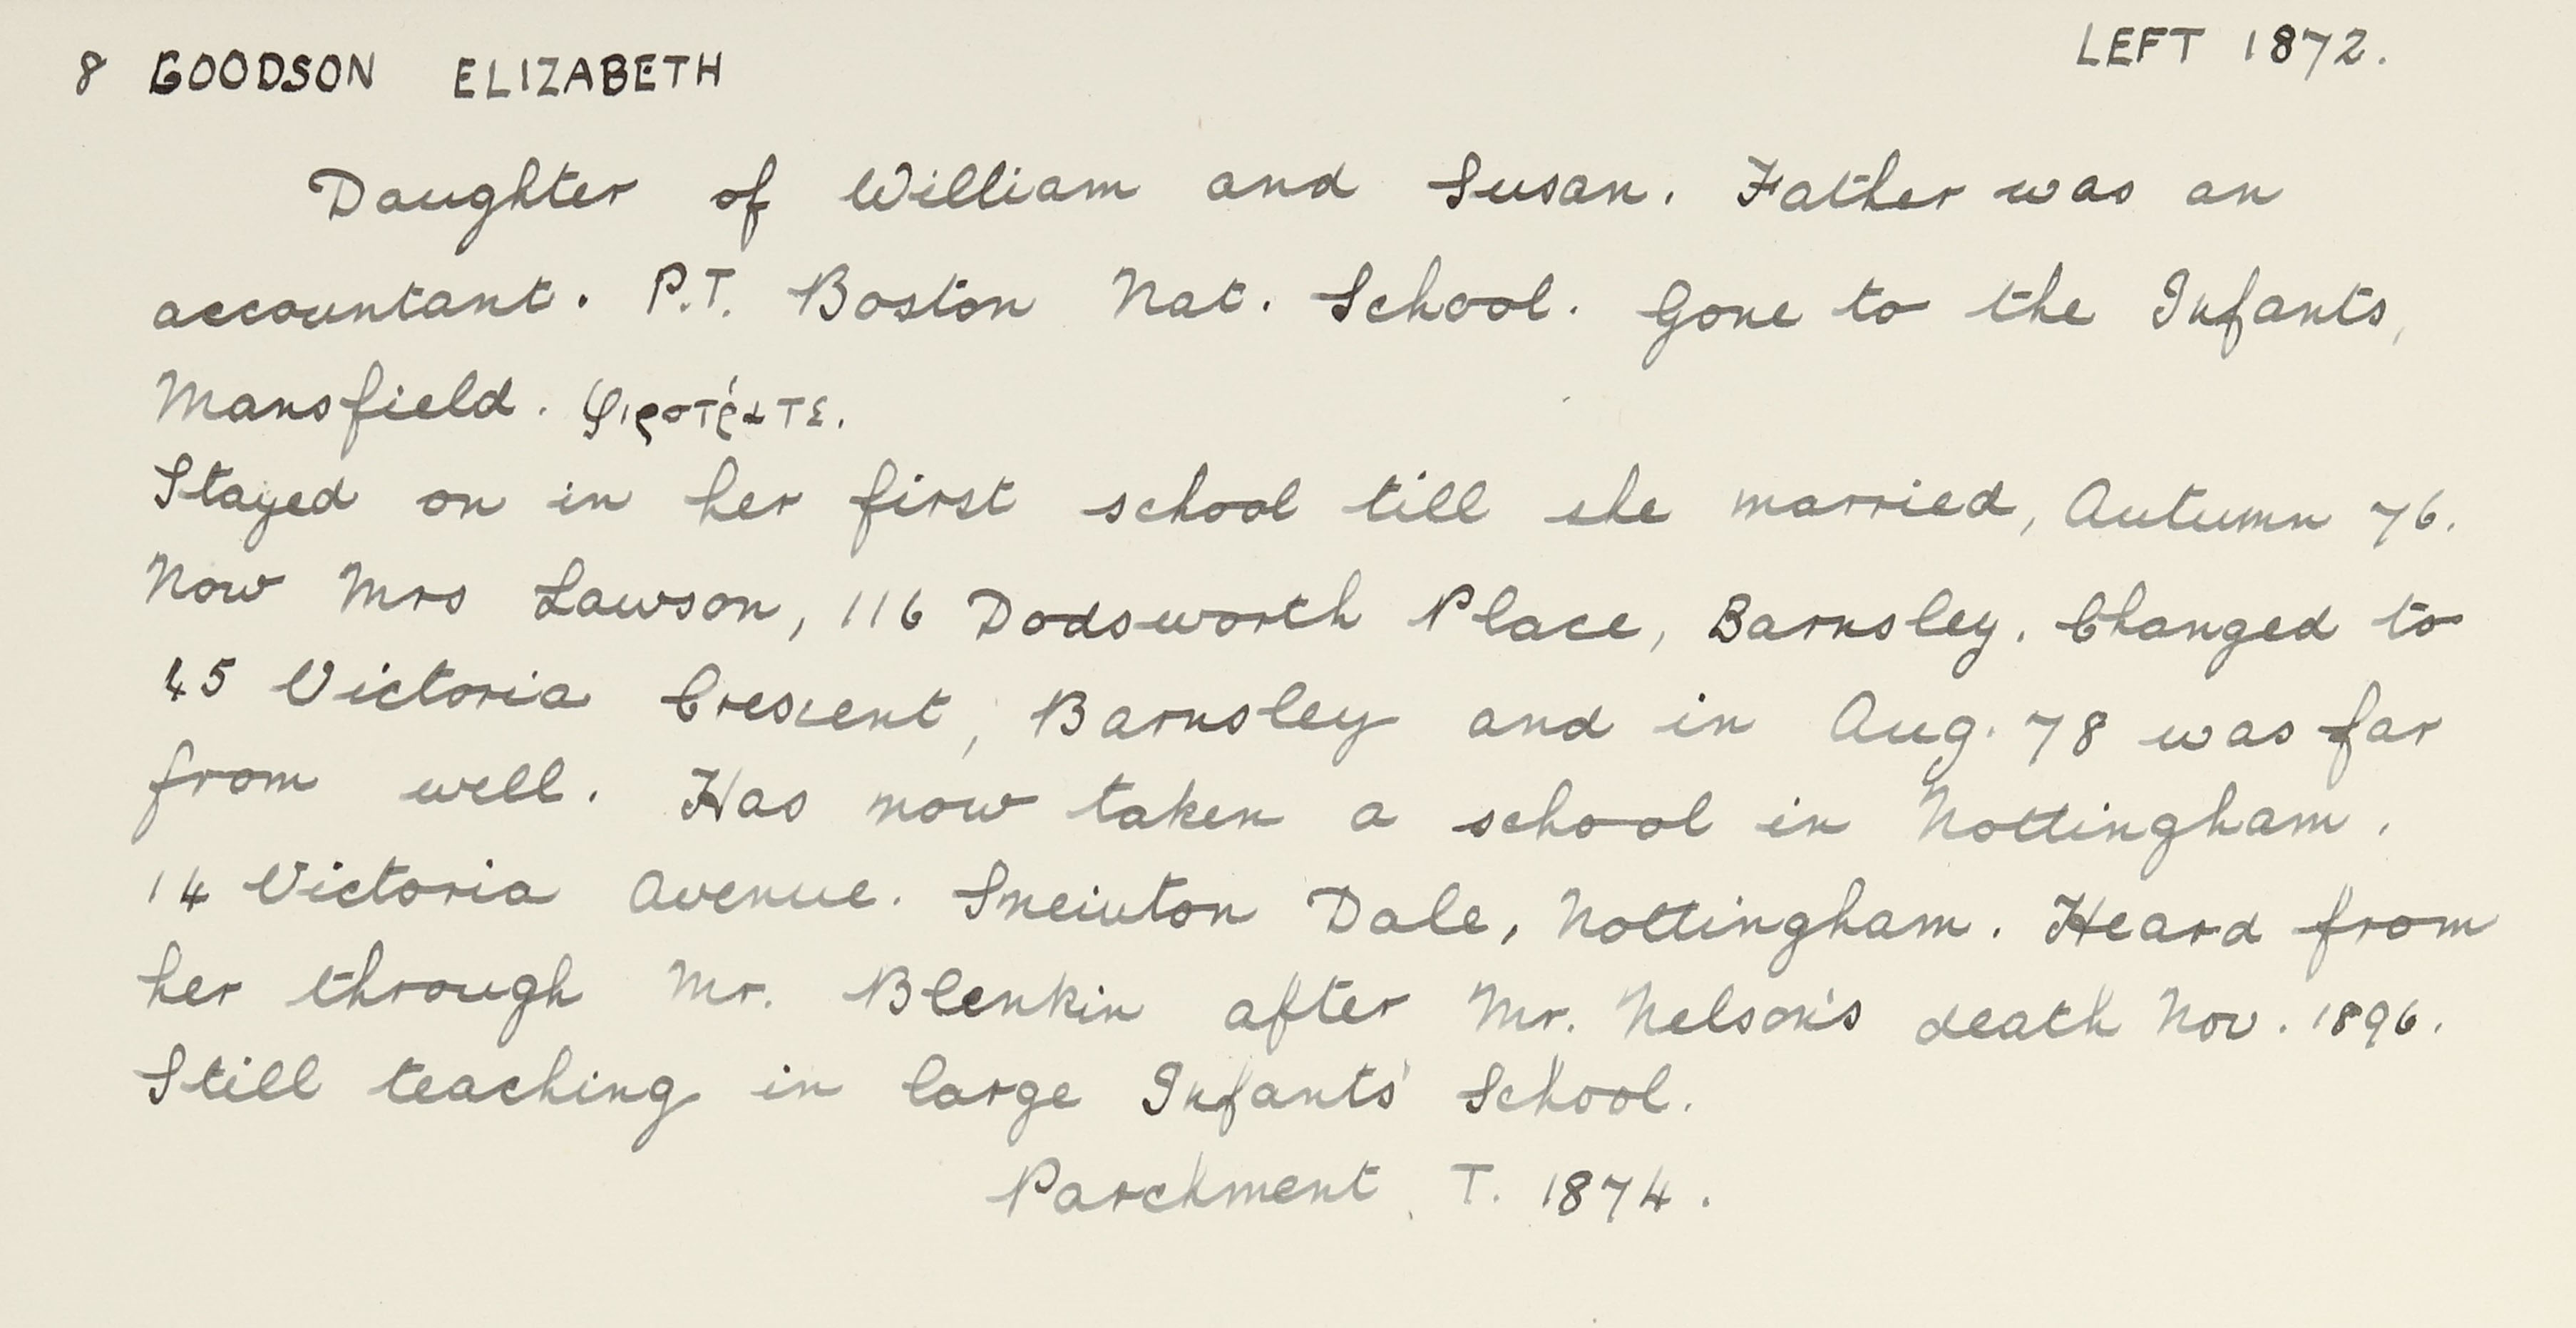 8 GOODSON ELIZABETH LEFT 1872.
Daughter of William and Susan. Father was an
accountant. P.T. Boston Nat. School. Gone to the Infants,
Mansfield.
Stayed on in her first school till she married, Autumn 76.
Now Mrs Lawson, 116 Dodsworth Place, Barnsley. Changed to
45 Victoria Crescent, Barnsley and in Aug. 78 was far
from well. Has now taken a school in Nottingham.
14 Victoria Avenue. Sneinton Dale, Nottingham. Heard from
her through Mr. Blenkin after Mr. Nelson's death Nov. 1896.
Still teaching in large Infants' School.
Parchment T. 1874.